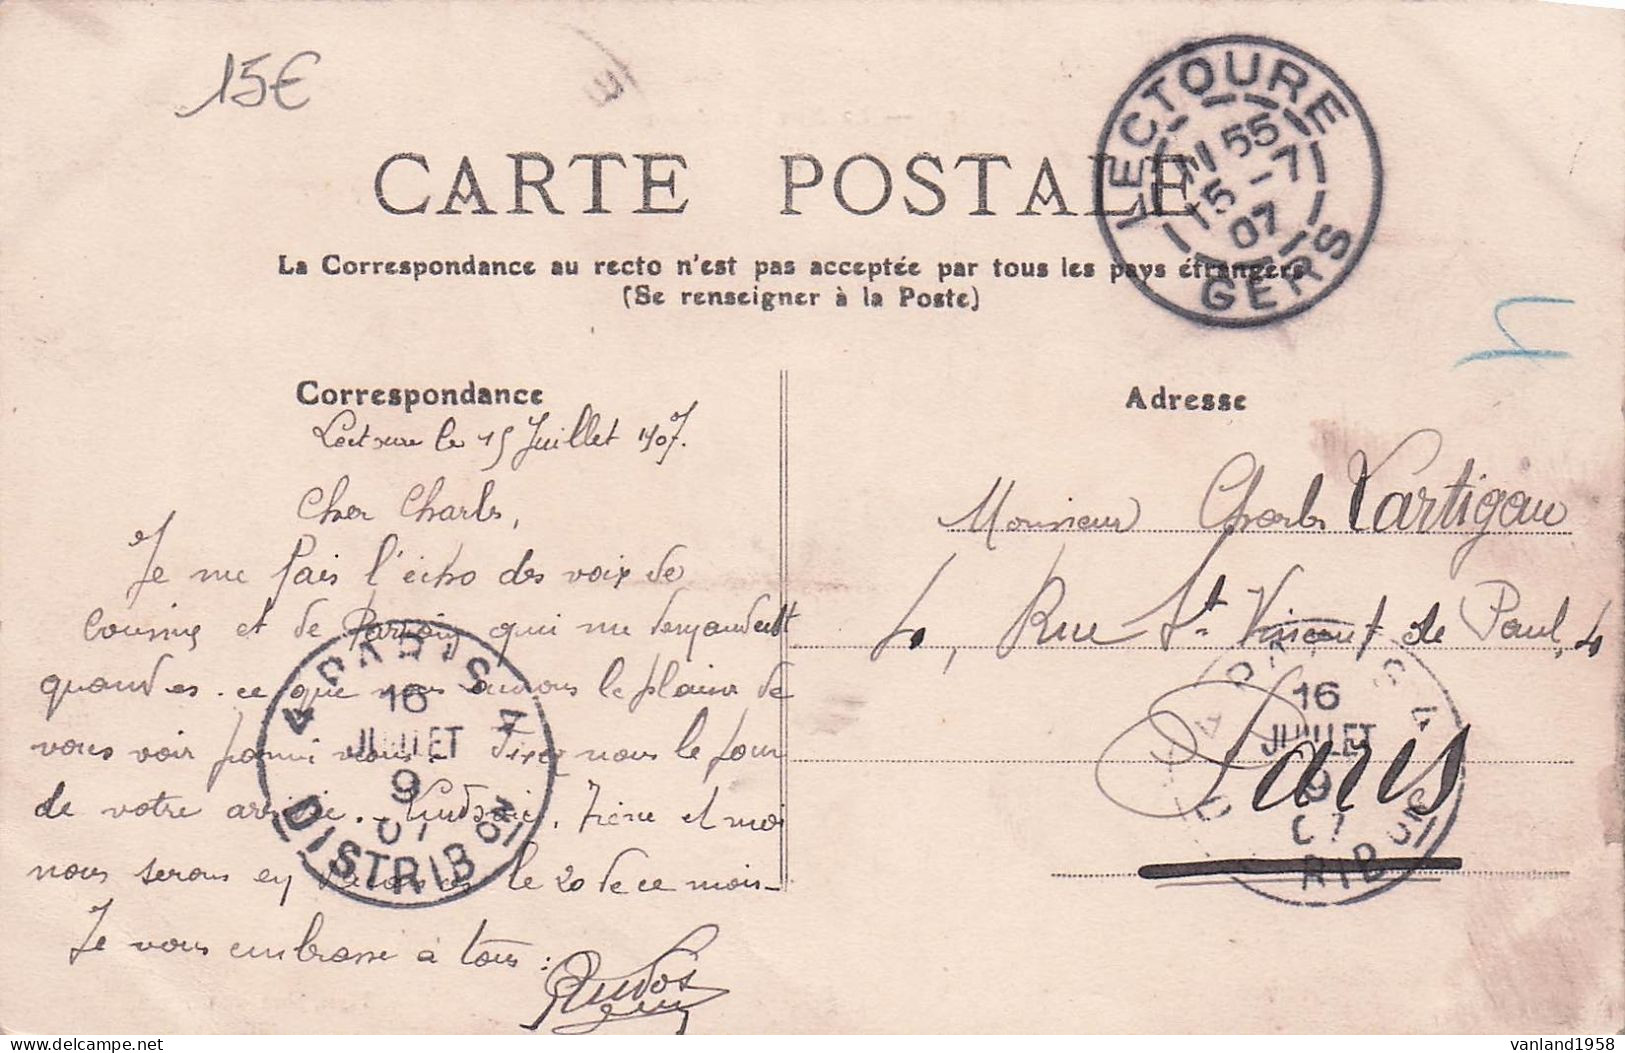 15€
CARTE POSTALE
La Correspondance au recto n'est pas acceptée par tous les pays étrangers
(Se renseigner à la Poste)
LECTOURE
55
15 -7
07
GERS
Correspondance
Adresse
Lectoure le 15 Juillet 1907.
Cher Charles,
Je me fais l'écho des voix de
cousins et de qui me demandent
quand est-ce que nous aurons le plaisir de
vous voir parmi nous. Fixez nous le jour
de votre arrivée. Irène et moi
nous serons en vacances le 20 de ce mois-
Je vous embrasse à tous:
Monsieur Charles Lartigau
4, Rue St. Vincent de Paul, 4
Paris
PARIS 4
16
JUILLET
9
07
DISTRIB ON
16
JUILLET
9
07
RIB ON
delcampe.net
vanland1958